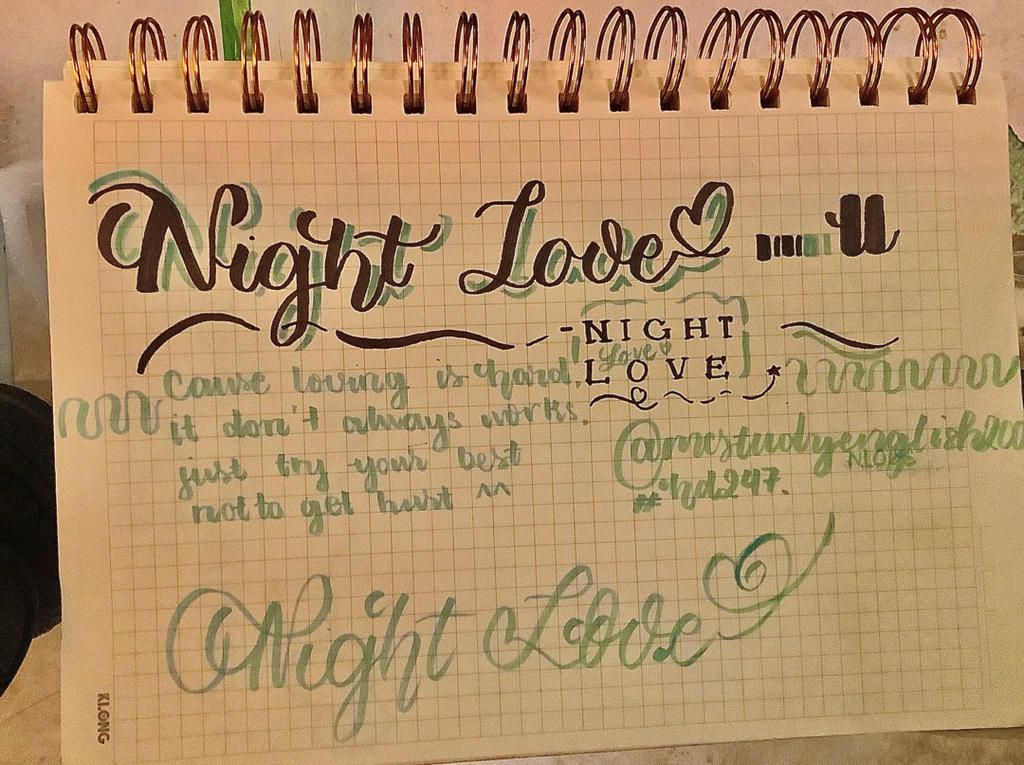 Night Love
NIGHT
Love
LOVE
Cause loving is hard.
it don't always works.
just try your best
not to get hurt ^^
@mrstudyenglish200
#hd247.
Night Love
KLONG